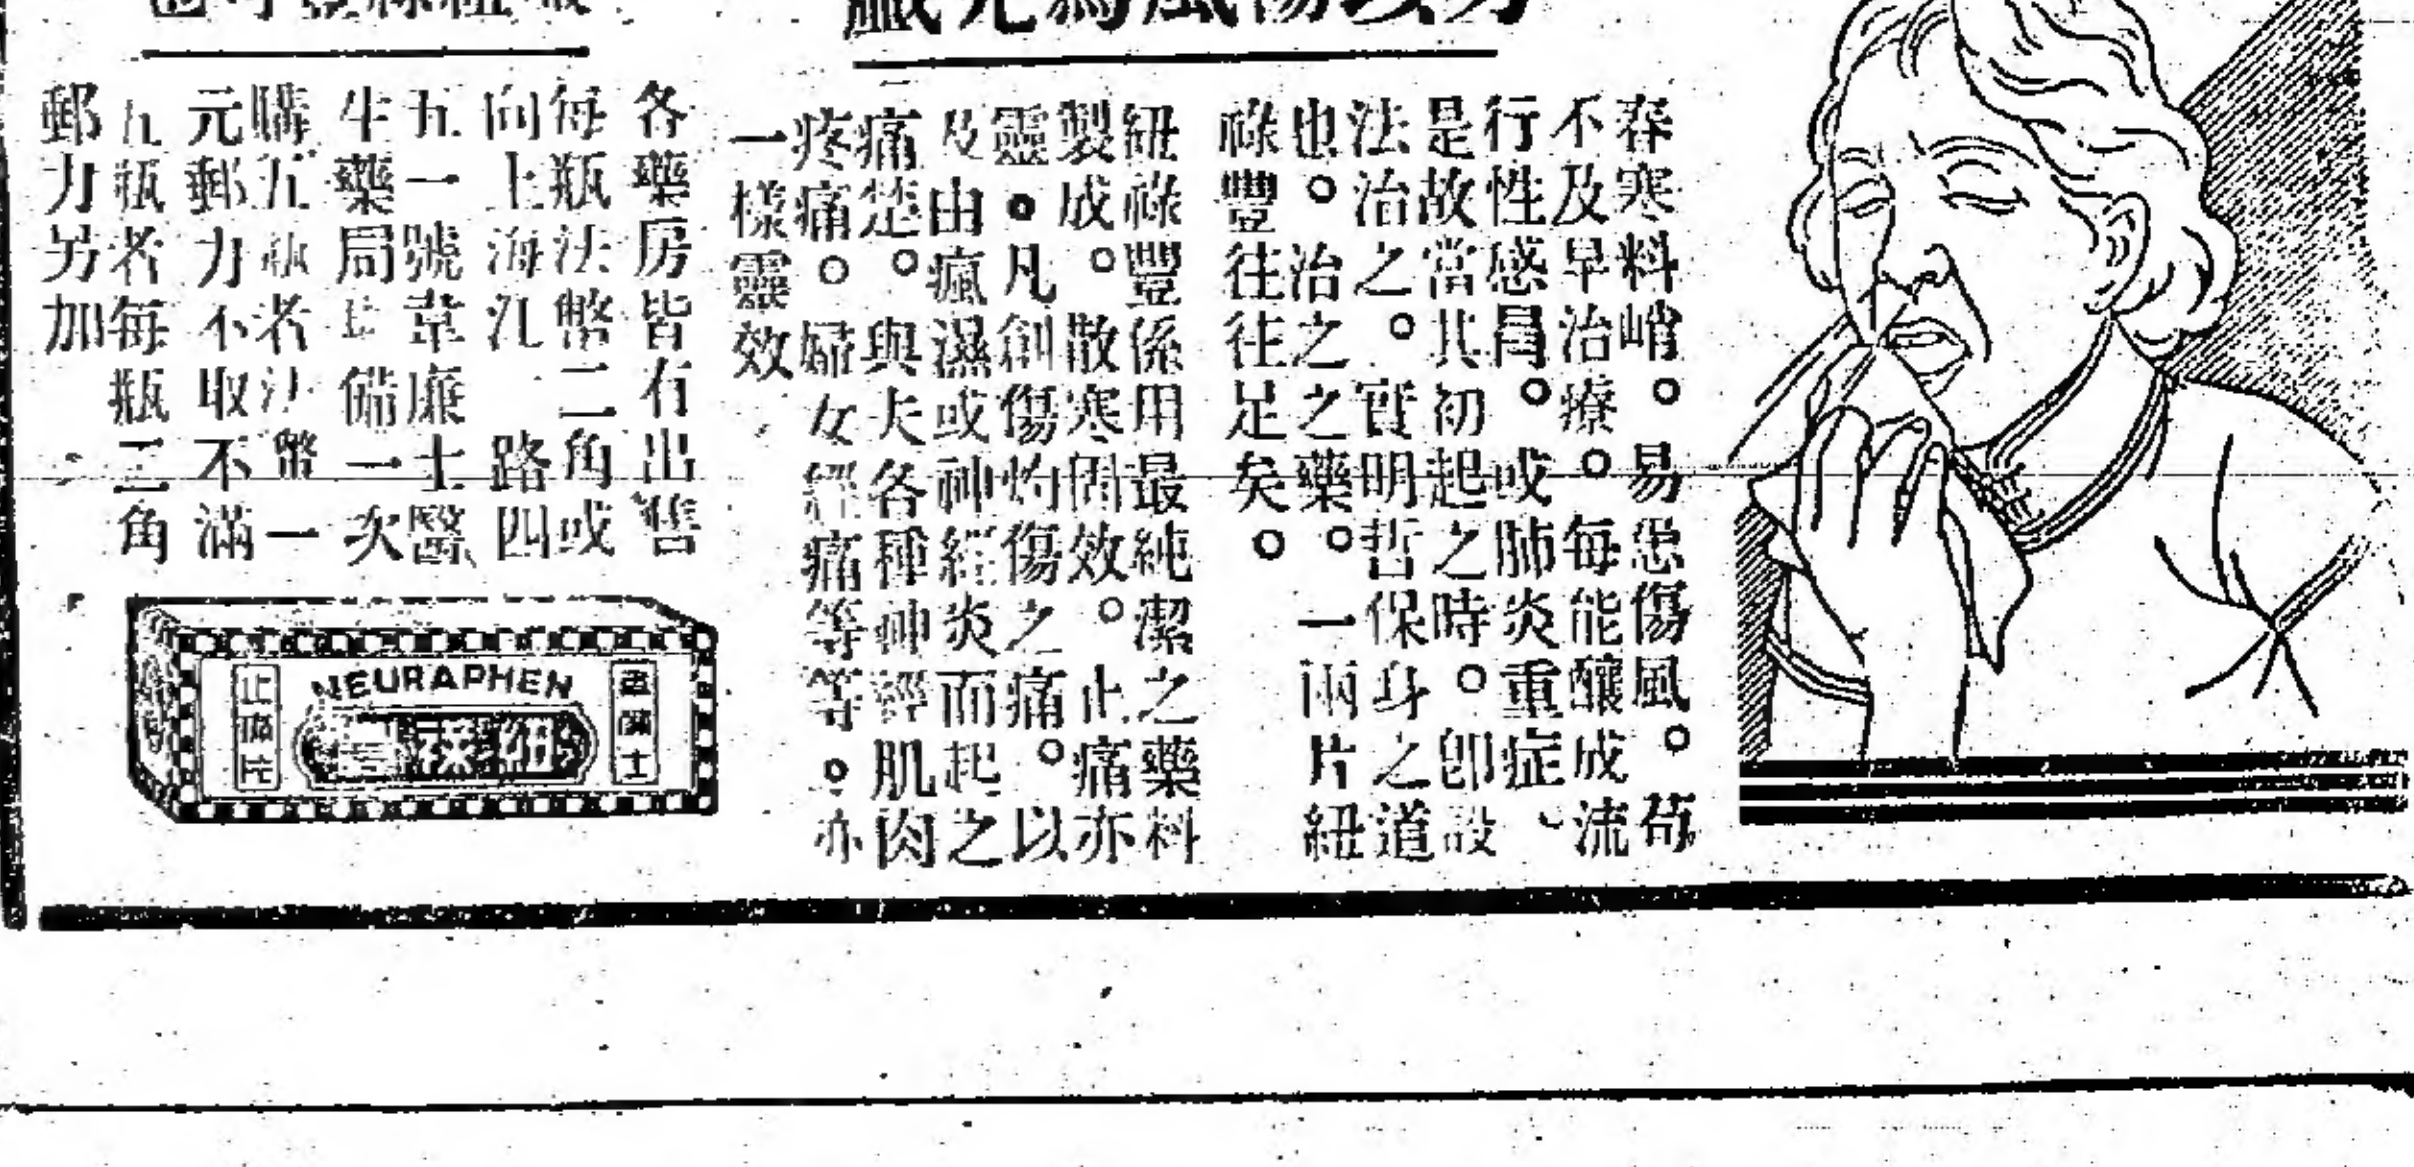 勿以傷風為兒戲
春寒料峭。易患傷風。苟
不及早治療。每能釀成流
行性感冒。或肺炎重症、
是故當其初起之時。卽設
法治之。實明哲保身之道
也。治之之藥。一兩片紐
祿豐往往足矣。
紐祿豐係用最純潔之藥料
製成。散寒固效。止痛亦
靈。凡創傷灼傷之痛。以
及由瘋濕或神經炎而起之
痛楚。與夫各種神經肌肉
疼痛。婦女經痛等等。亦
一樣靈效
各藥房皆有出售
每瓶法幣二角或
向上海江路四
五一號韋廉士醫
生藥局 備一次
購五瓶者法幣一
元郵力不取不滿
五瓶者每瓶二角
郵力另加
NEURAPHEN
士
止痛片